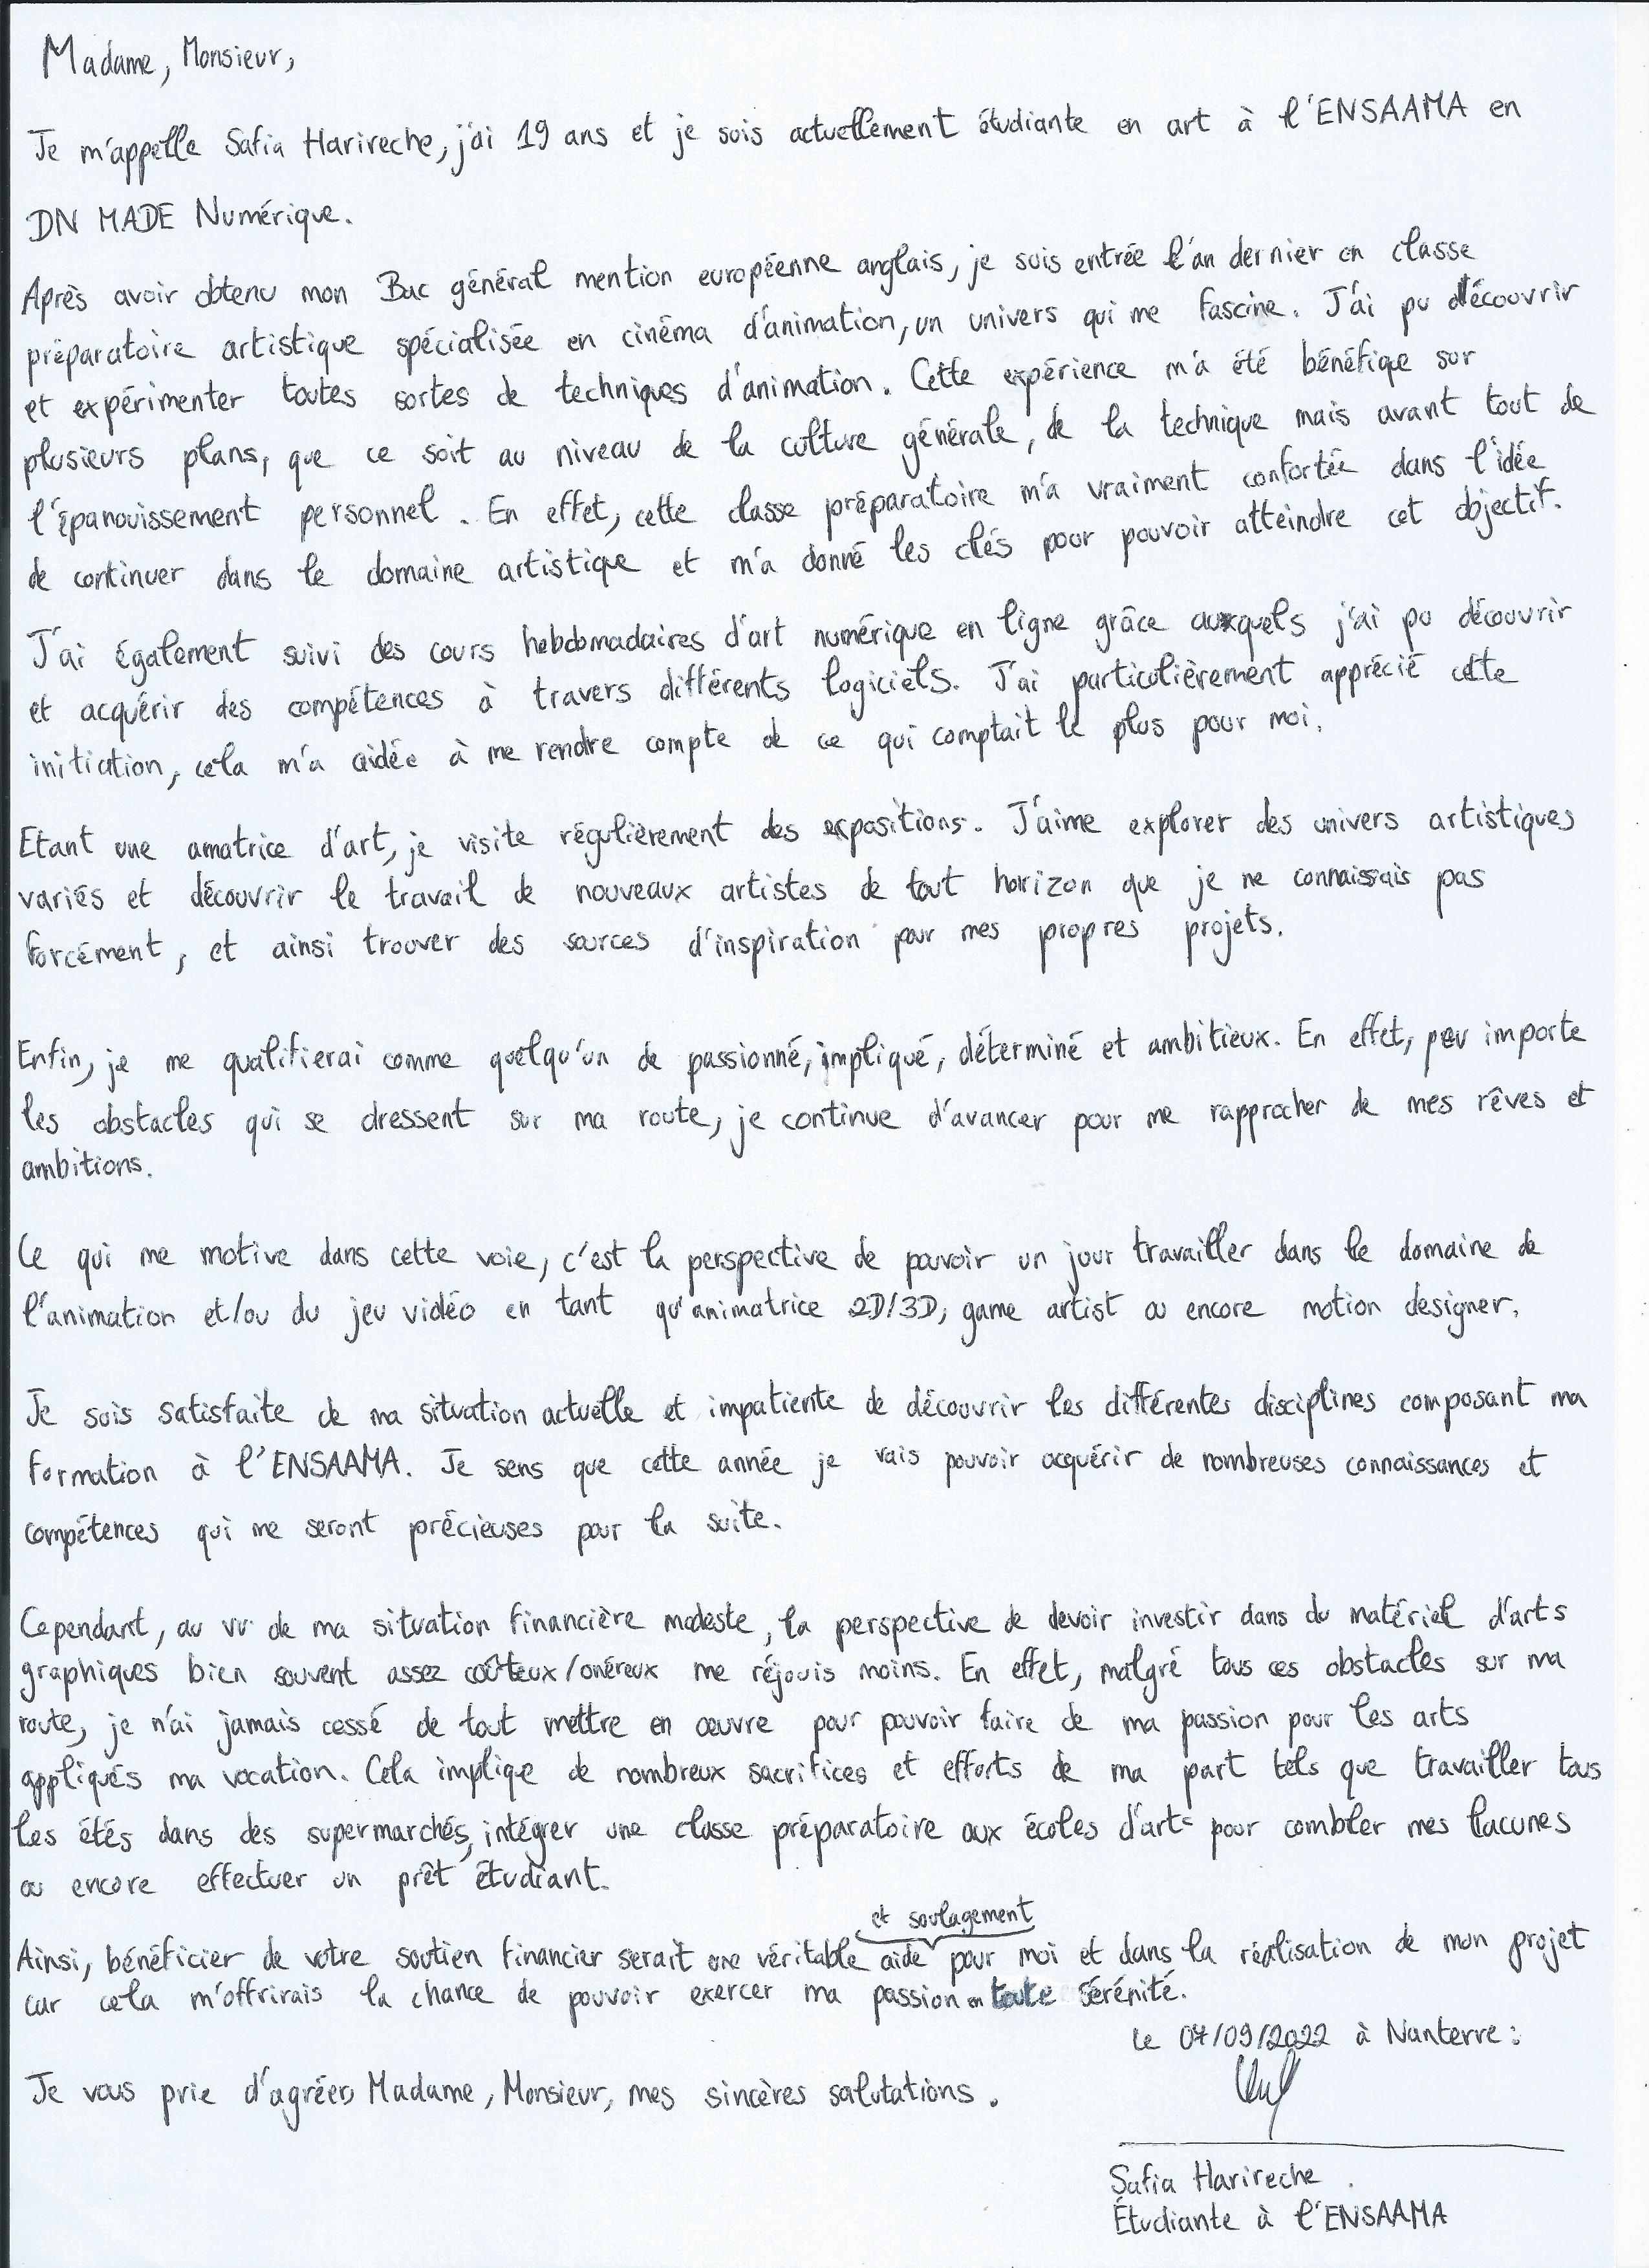 Madame, Monsieur,
Je m'appelle Safia Harireche, j'ai 19 ans et je suis actuellement étudiante en art à l'ENSAAMA en
DN MADE Numérique.
Après avoir obtenu mon Bac général mention européenne anglais, je suis entrée l'an dernier en classe
préparatoire artistique spécialisée en cinéma d'animation, un univers qui me fascine. J'ai pu découvrir
et expérimenter toutes sortes de techniques d'animation. Cette expérience m'a été bénéfique sur
plusieurs plans, que ce soit au niveau de la culture générale, de la technique mais avant tout de
l'épanouissement personnel. En effet, cette classe préparatoire m'a vraiment confortée dans l'idée
de continuer dans le domaine artistique et m'a donné les clés pour pouvoir atteindre cet objectif.
J'ai également suivi des cours hebdomadaires d'art numérique en ligne grâce auxquels j'ai pu découvrir
et acquérir des compétences à travers différents logiciels. J'ai particulièrement apprécié cette
initiation, cela m'a aidée à me rendre compte de ce qui comptait le plus pour moi.
Etant une amatrice d'art, je visite régulièrement des expositions. J'aime explorer des univers artistiques
variés et découvrir le travail de nouveaux artistes de tout horizon que je ne connaissais pas
forcément, et ainsi trouver des sources d'inspiration pour mes propres projets.
Enfin, je me qualifierai comme quelqu'un de passionné, impliqué, déterminé et ambitieux. En effet, peu importe
les obstacles qui se dressent sur ma route, je continue d'avancer pour me rapprocher de mes rêves et
ambitions.
Ce qui me motive dans cette voie, c'est la perspective de pouvoir un jour travailler dans le domaine de
l'animation et/ou du jeu vidéo en tant qu'animatrice 2D/3D, game artist ou encore motion designer.
Je suis satisfaite de ma situation actuelle et impatiente de découvrir les différentes disciplines composant ma
formation à l'ENSAAMA. Je sens que cette année je vais pouvoir acquérir de nombreuses connaissances et
compétences qui me seront précieuses pour la suite.
Cependant, au vu de ma situation financière modeste, la perspective de devoir investir dans du matériel d'arts
graphiques bien souvent assez coûteux/onéreux me réjouis moins. En effet, malgré tous ces obstacles sur ma
route, je n'ai jamais cessé de tout mettre en œuvre pour pouvoir faire de ma passion pour les arts
appliqués ma vocation. Cela implique de nombreux sacrifices et efforts de ma part tels que travailler tous
les étés dans des supermarchés, intégrer une classe préparatoire aux écoles d'arts pour combler mes lacunes
ou encore effectuer un prêt étudiant.
et soulagement
Ainsi, bénéficier de votre soutien financier serait une véritable aide pour moi et dans la réalisation de mon projet
car cela m'offrirais la chance de pouvoir exercer ma passion en toute sérénité.
le 07/09/2022 à Nanterre :
Je vous prie d'agréer, Madame, Monsieur, mes sincères salutations.
Safia Harireche
Étudiante à l'ENSAAMA